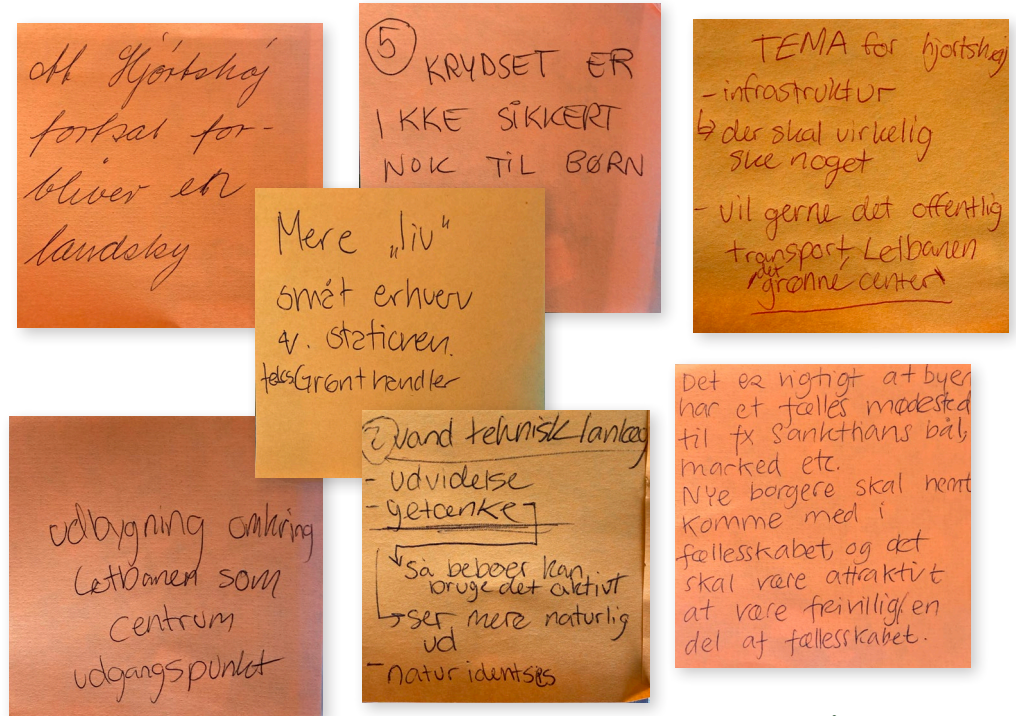 At Hjortshøj
fortsat for-
bliver en
landsby
5
KRYDSET ER
IKKE SIKKERT
NOK TIL BØRN
TEMA for hjortshøj
- infrastruktur
↳ der skal virkelig
ske noget
- vil gerne det offentlig
transport, Letbanen
det
"grønne center"
Mere „liv“
småt erhverv
v. stationen.
feks Grønthandler
udbygning omkring
Letbanen som
centrum
udgangspunkt
2 vand teknisk/anlæg
- udvidelse
- getænke
så beboer kan
bruge det aktivt
ser mere naturlig
ud
- natur
Det er rigtigt at byen
har et fælles mødested
til fx Sankthans bål,
marked etc.
Nye borgere skal nemt
komme med i
fællesskabet, og det
skal være attraktivt
at være freivillig/en
del af fællesskabet.